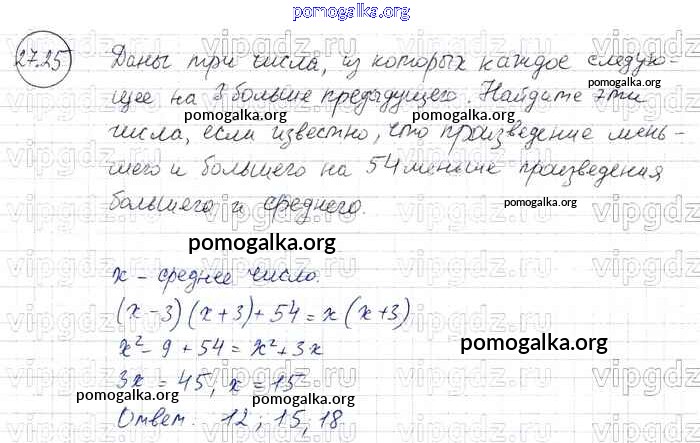 pomogalka.org
27.25
Даны три числа, из которых каждое следую-
щее на 3 больше предыдущего. Найдите эти
числа, если известно, что произведение мень-
шего и большего на 54 меньше произведения
большего и среднего.
pomogalka.org
pomogalka.org
pomogalka.org
pomogalka.org
x - среднее число.
(x-3)(x+3)+54=x(x+3)
x²-9+54=x²+3x
3x=45, x=15
Ответ: 12; 15, 18
pomogalka.org
pomogalka.org
pomogalka.org